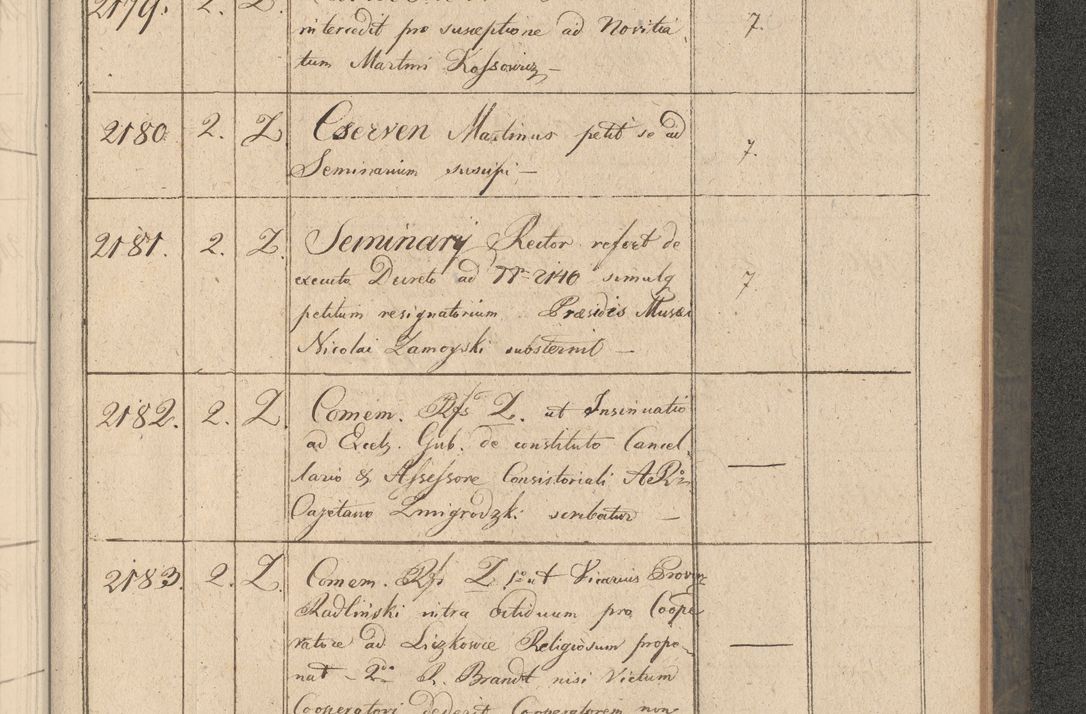 2179. 2. Z.
intercedit pro susceptione ad Novitia 7.
tum Martini Kossowicz —
2180 2. Z. Cserven Martinus petit se ad
Seminarium suscipi — 7.
2181. 2. Z. Seminarÿ Rector refert de
executo Decreto ad Nr 2140 simulq
petitum resignatorium Præsidis Musæi 7
Nicolai Zamoyski substernit —
2182. 2. Z. Comem. Rfs Z. ut Insinuatio
ad Excels. Gub. de constituto Cancel
lario & Assessore Consistoriali AR —
Cajetano Zmigrodzki scribatur —
2183. 2. Z. Comem. Rfs Z. 1o ut Vicarius Provin
Radliński intra octiduum pro Coope
ratore ad Liczkowce Religiosum propo- —
nat - 2do P. Brandt nisi Victum
Cooperatori dederit Cooperatorem non